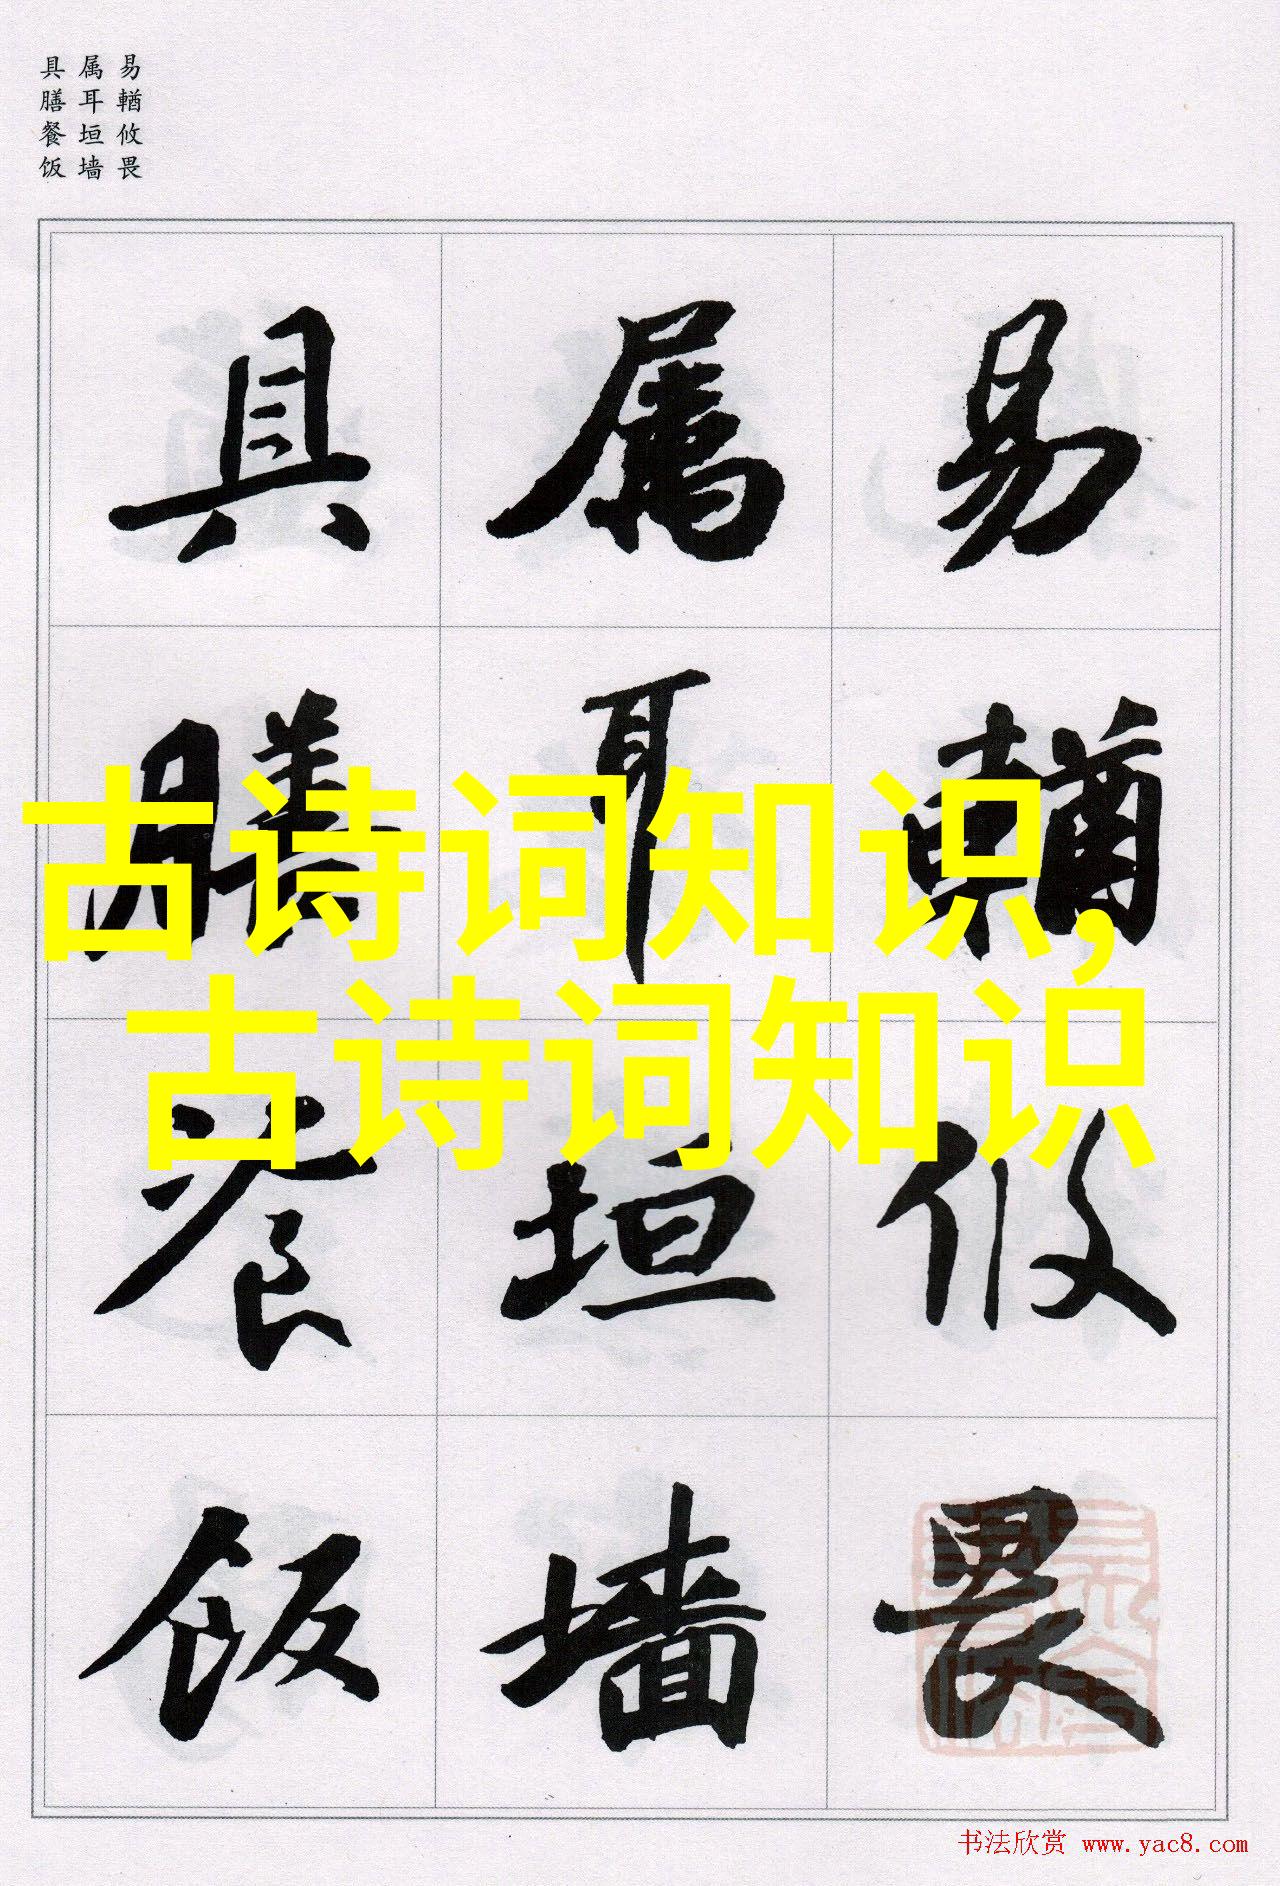 易輶攸畏
属耳垣墙
具膳餐饭
易輶攸畏
属耳垣墙
具膳餐饭
古诗词知识,
古诗词知识
书法欣赏 www.yac8.com